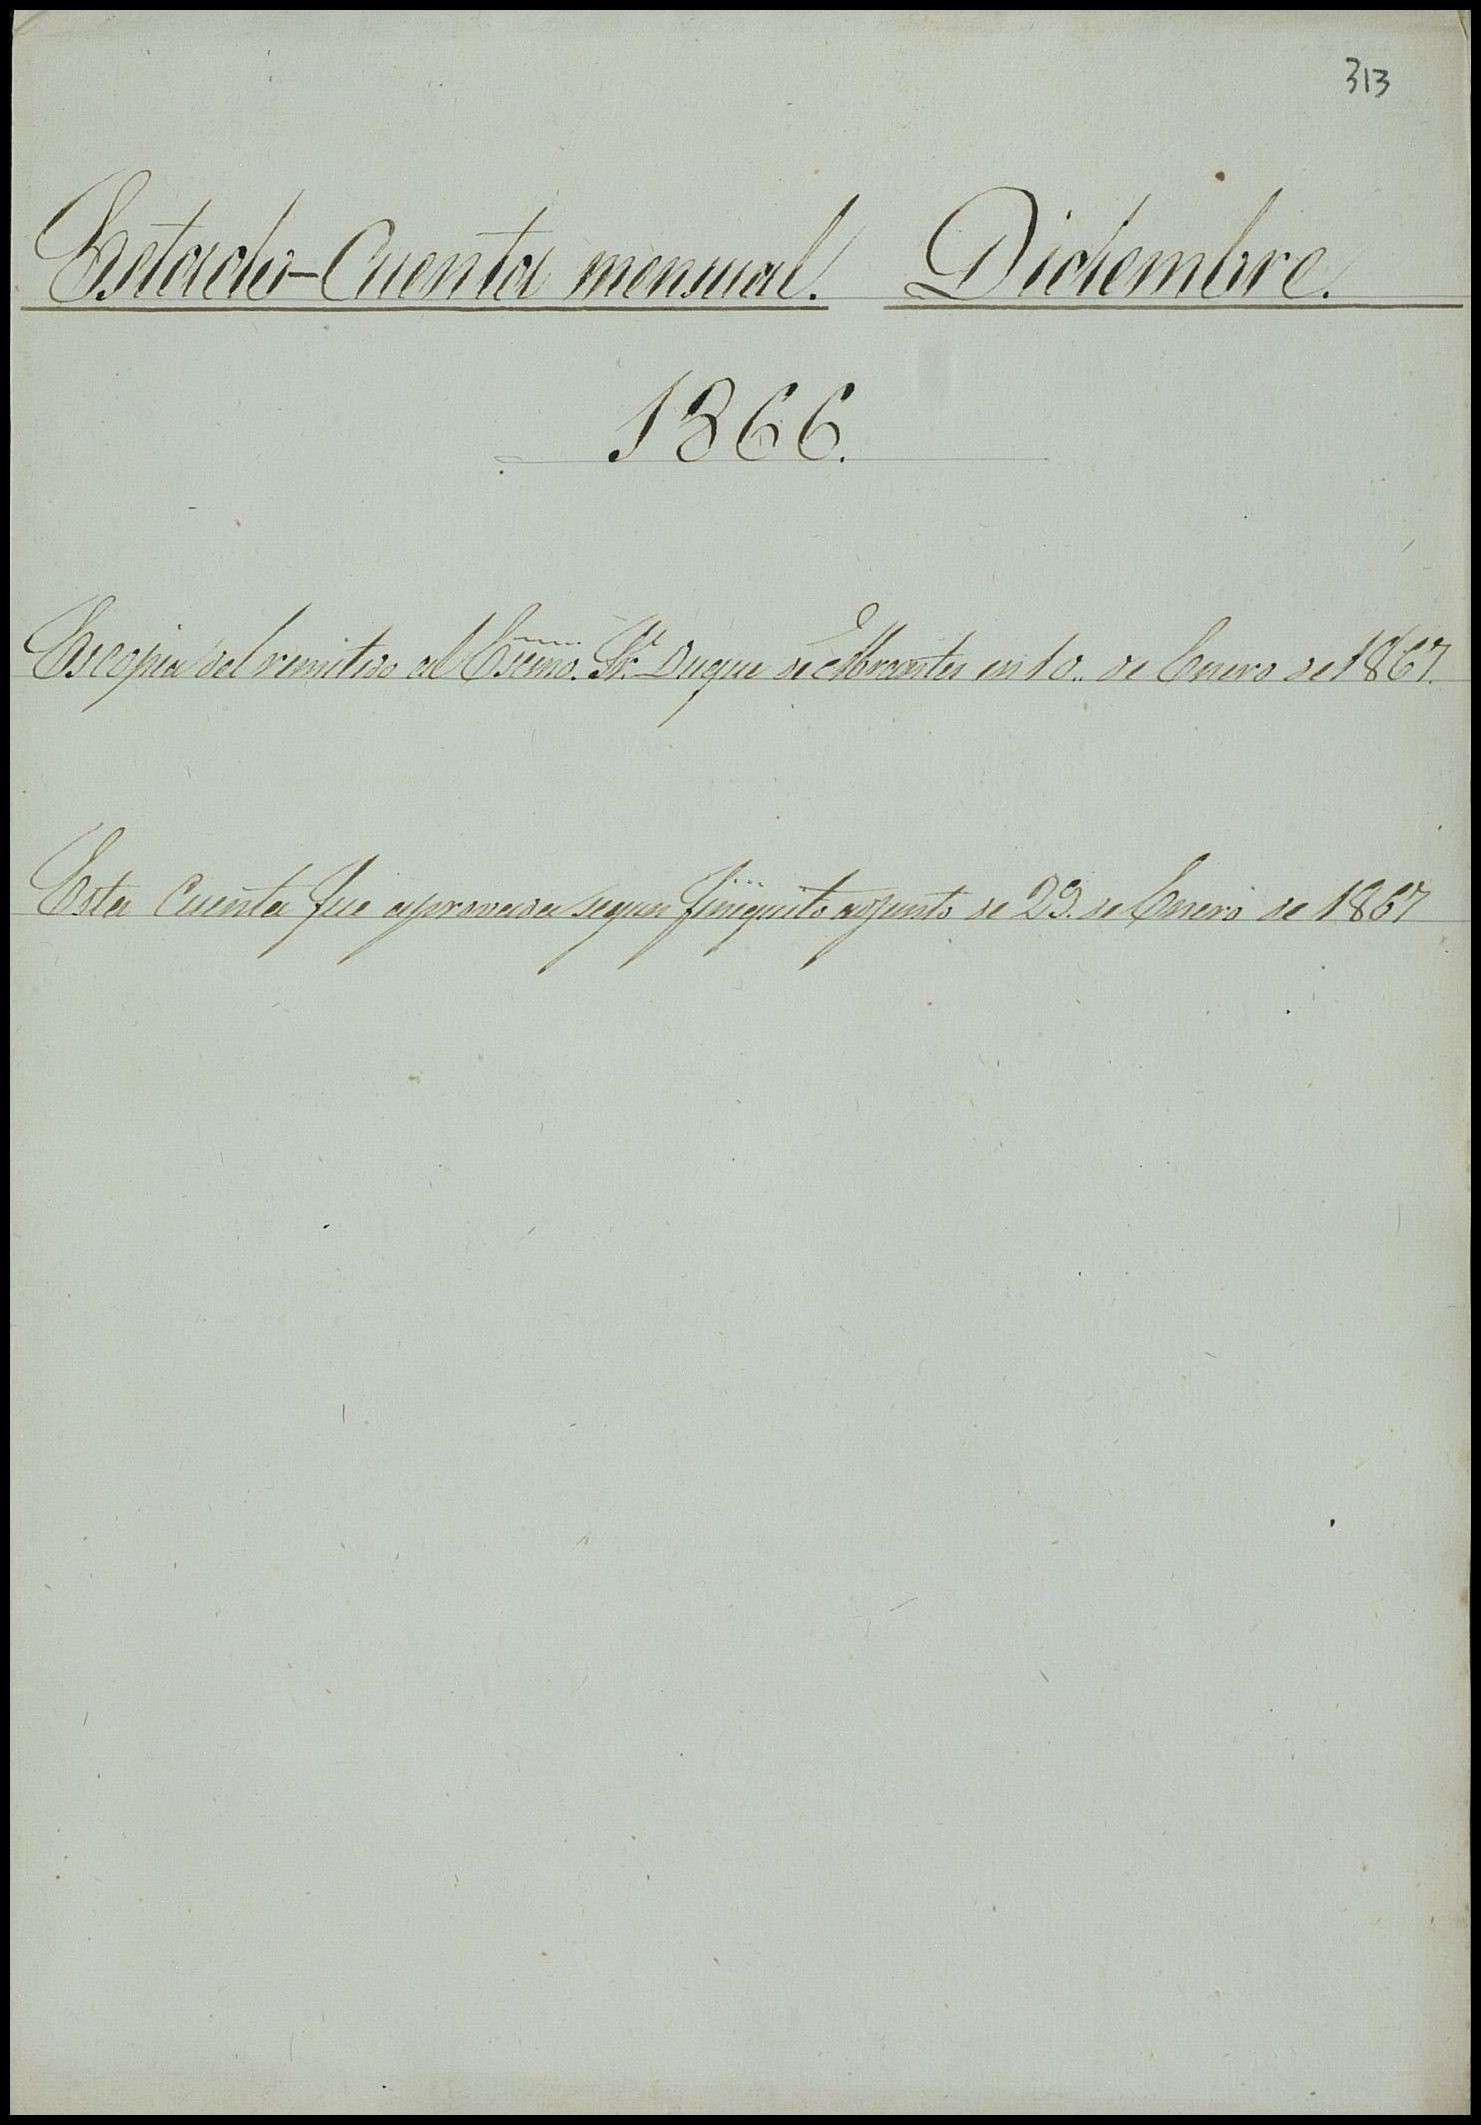 313
Estado-Cuenta mensual. Diciembre.
1866.
Es copia del remitido al Escmo. Sr. Duque de Abrantes en 10. de Enero de 1867.
Esta Cuenta fue aprovada segun finiquito adjunto de 29. de Enero de 1867